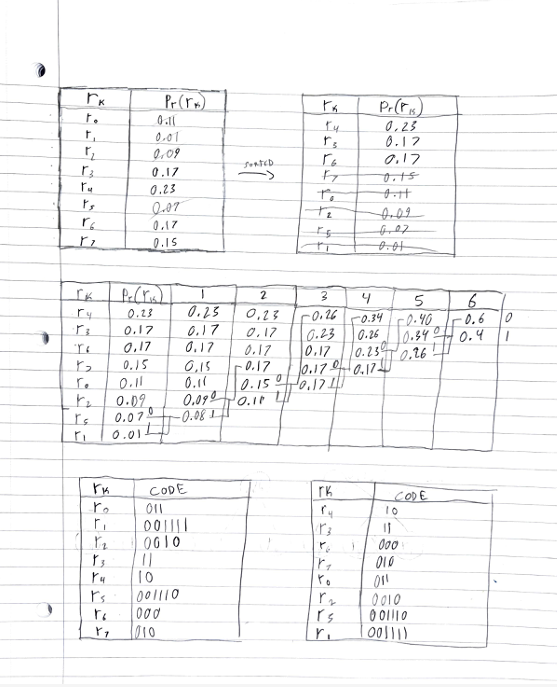 rk Pr(rk)
r0 0.11
r1 0.01
r2 0.09
r3 0.17
r4 0.23
r5 0.07
r6 0.17
r7 0.15
SORTED
rk Pr(rk)
r4 0.23
r3 0.17
r6 0.17
r7 0.15
r0 0.11
r2 0.09
r5 0.07
r1 0.01
rk Pr(rk) 1 2 3 4 5 6
r4 0.23 0.23 0.23 0.26 0.34 0.40 0.6 0
r3 0.17 0.17 0.17 0.23 0.26 0.34 0 0.4 1
r6 0.17 0.17 0.17 0.17 0.23 0 0.26 1
r7 0.15 0.15 0.17 0.17 0 0.17 1
r0 0.11 0.11 0.15 0 0.17 1
r2 0.09 0.09 0 0.11 1
r5 0.07 0 0.08 1
r1 0.01 1
rk CODE
r0 011
r1 001111
r2 0010
r3 11
r4 10
r5 001110
r6 000
r7 010
rk CODE
r4 10
r3 11
r6 000
r7 010
r0 011
r2 0010
r5 001110
r1 001111